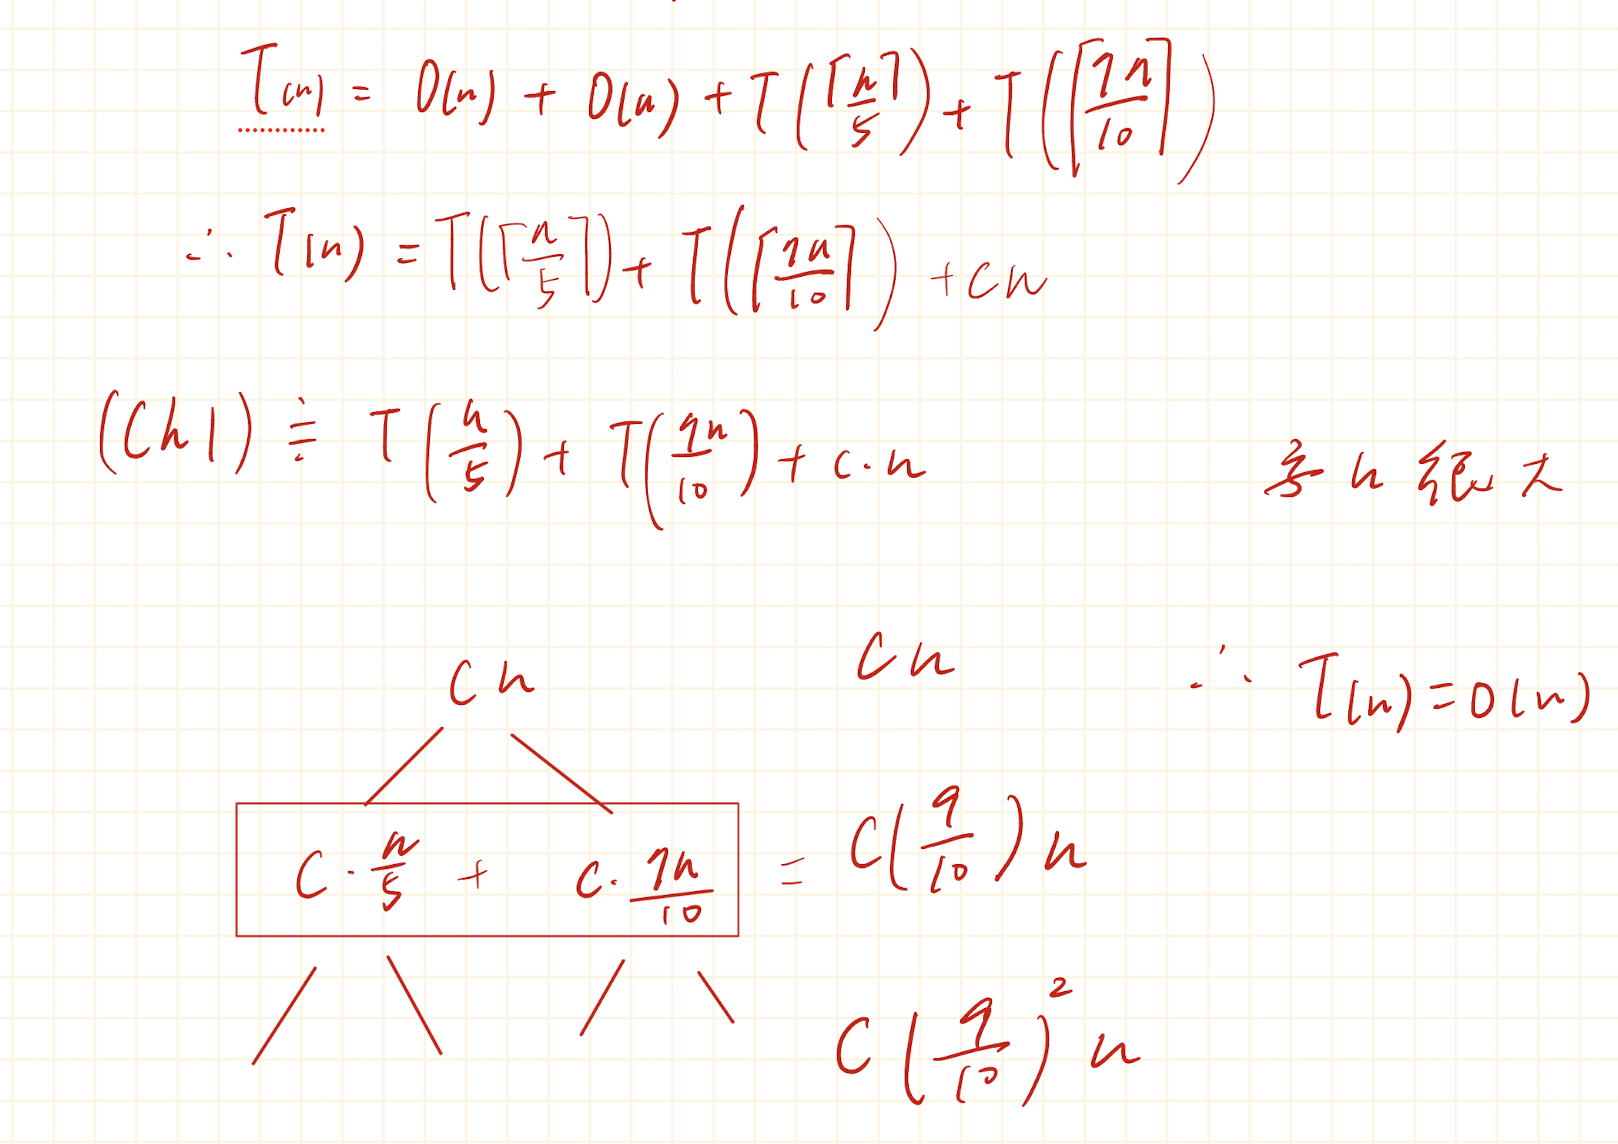 T(n) = O(n) + O(n) + T(⌈n/5⌉) + T(⌈7n/10⌉)
∴ T(n) = T(⌈n/5⌉) + T(⌈7n/10⌉) + cn
(Ch1) ≒ T(n/5) + T(7n/10) + c·n
n 很大
cn
cn
∴ T(n) = O(n)
C·n/5 + C·7n/10 = C(9/10)n
C(9/10)²n